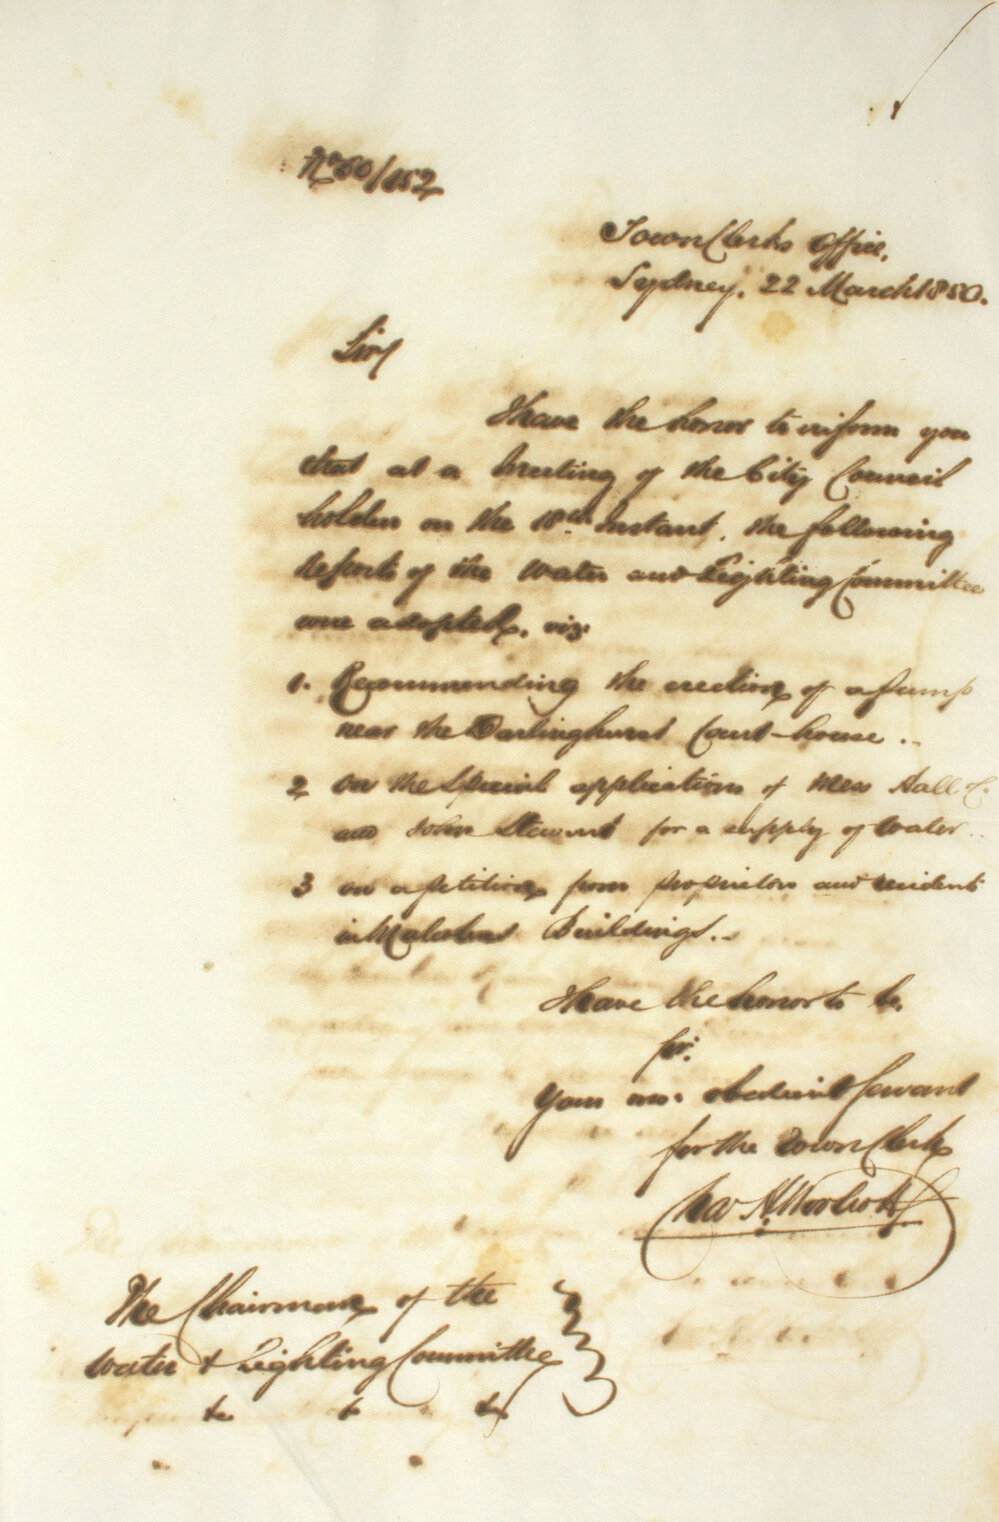 No 50/152
Town Clerks Office,
Sydney. 22 March 1850.
Sir
I have the honor to inform you
that at a Meeting of the City Council
holden on the 18th Instant. the following
Reports of the Water and Lighting Committee
were adopted. viz:
1. Recommending the erection of a Pump
near the Darlinghurst Court-house ..
2 on the Special application of Mess Hall &c.
and John Stewart for a supply of Water ..
3 on a petition from proprietors and residents
in Buildings ..
I have the honor to be,
Sir.
Your mo. obedient Servant
for the Town Clerk
Chas H Woolcott
The Chairman of the
Water & Lighting Committee
&c & &c